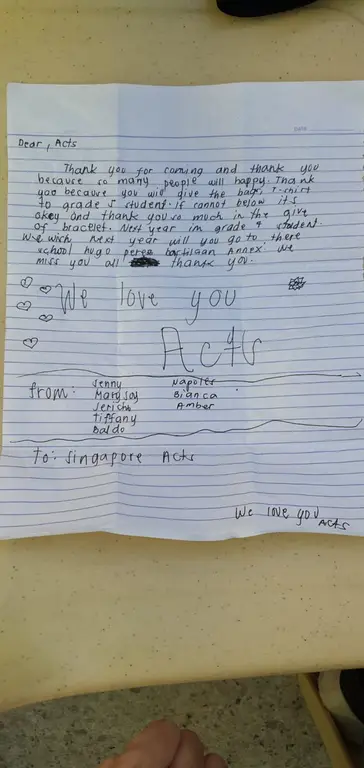 Dear, Acts
Thank you for coming and thank you
because so many people will happy. Thank
you because you will give the bag, T-shirt
to grade 5 student. if cannot below its
okey and thank you so much in the give
of bracelet. Next year im grade 9 student.
We wish next year will you go to there
school hugo perez bartilaan Annex. We
miss you all thank you.
We love you
Acts
from: Jenny Napoles
Mary joy Bianca
Jericho Amber
Tiffany
Baldo
to: Singapore Acts
We love you
Acts